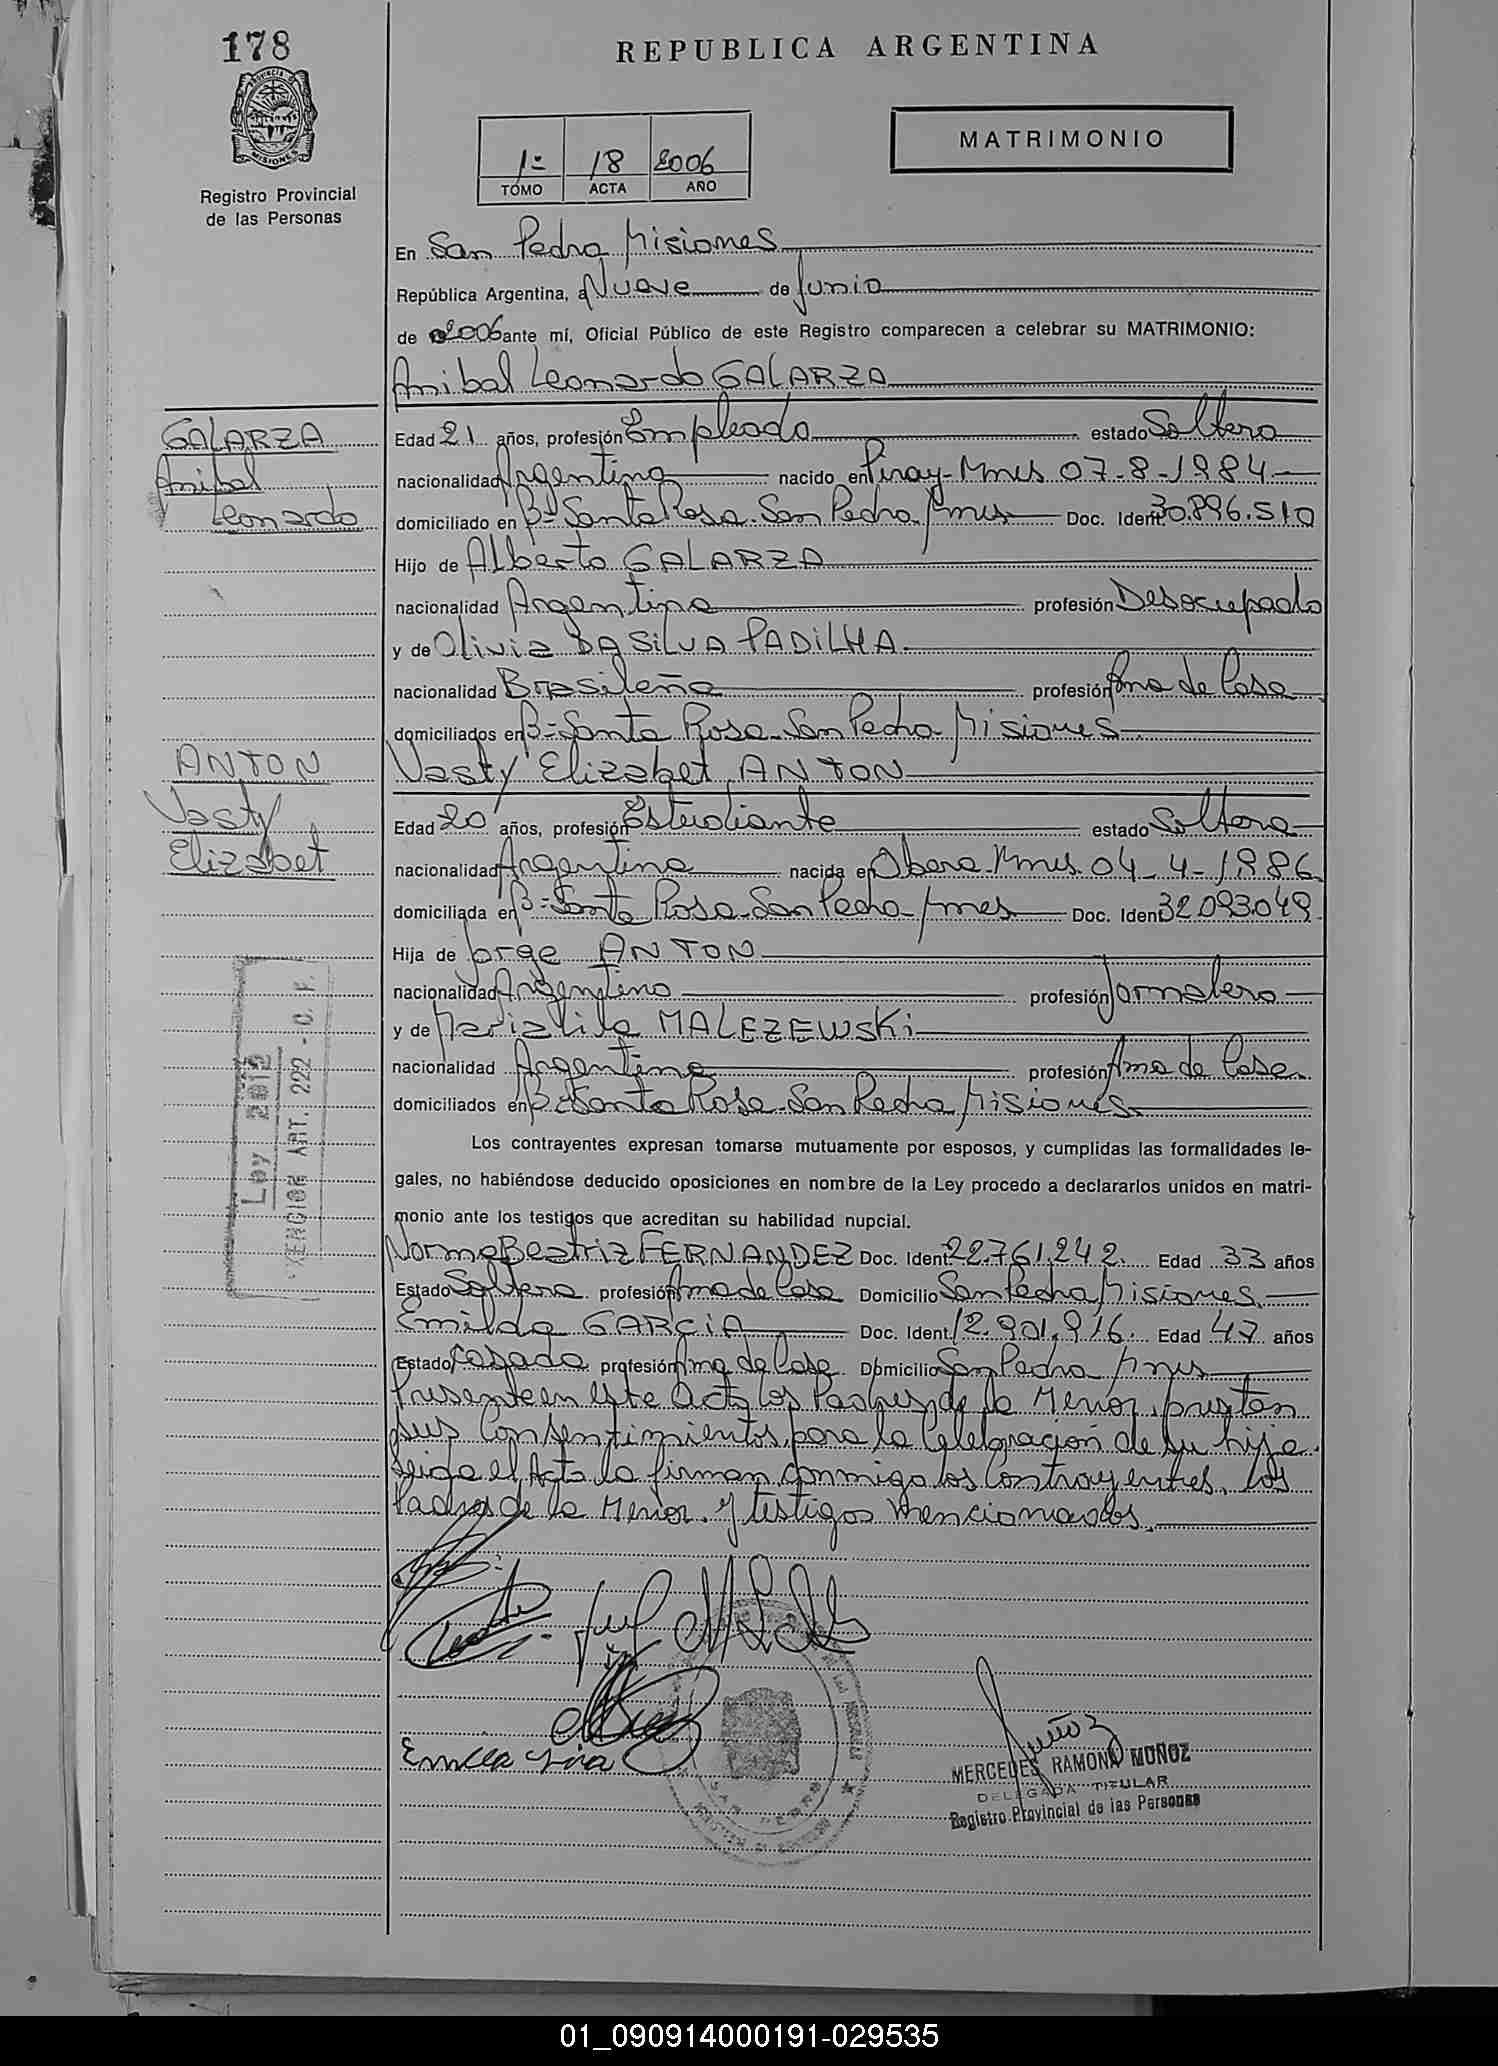 178
REPUBLICA ARGENTINA
PROVINCIA DE
MISIONES
Registro Provincial
de las Personas
MATRIMONIO
1º 18 2006
TOMO ACTA AÑO
En San Pedro Misiones
República Argentina, a Nueve de Junio
de 2006 ante mí, Oficial Público de este Registro comparecen a celebrar su MATRIMONIO:
Anibal Leonardo GALARZA
GALARZA
Anibal
Leonardo
Edad 21 años, profesión Empleado estado Soltero
nacionalidad Argentina nacido en Piray-Mnes 07-8-1984
domiciliado en Bº Santa Rosa-San Pedro-Mnes Doc. Ident 30.896.510
Hijo de Alberto GALARZA
nacionalidad Argentina profesión Desocupado
y de Olivia DA SILVA PADILHA
nacionalidad Brasileña profesión Ama de Casa
domiciliados en Bº Santa Rosa-San Pedro-Misiones
ANTON
Vasty
Elizabet
Vasty Elizabet ANTON
Edad 20 años, profesión Estudiante estado Soltera
nacionalidad Argentina nacida en Obera-Mnes. 04-4-1986
domiciliada en Bº Santa Rosa-San Pedro-Mnes Doc. Ident 32.093.049
Hija de Jorge ANTON
nacionalidad Argentino profesión Jornalero
y de Maria Lila MALEZEWSKI
nacionalidad Argentina profesión Ama de Casa
domiciliados en Bº Santa Rosa-San Pedro Misiones
Los contrayentes expresan tomarse mutuamente por esposos, y cumplidas las formalidades le-
gales, no habiéndose deducido oposiciones en nombre de la Ley procedo a declararlos unidos en matri-
monio ante los testigos que acreditan su habilidad nupcial.
Norma Beatriz FERNANDEZ Doc. Ident. 22.761.242. Edad 33 años
Estado Soltera profesión Ama de Casa Domicilio San Pedro Misiones
Emilda GARCIA Doc. Ident. 12.901.916. Edad 47 años
Estado Casada profesión Ama de Casa Domicilio San Pedro Mnes
Presente en este Acto los Padres de la Menor, prestan
sus Consentimientos para la Celebración de su hija.
Leida el Acta la firman conmigo los Contrayentes, los
Padres de la Menor y testigos mencionados.
Ley 2015
EXENCION ART. 222 - C. F.
Muñoz
MERCEDES RAMONA MUÑOZ
DELEGADA TITULAR
Registro Provincial de las Personas
SAN PEDRO
01_090914000191-029535